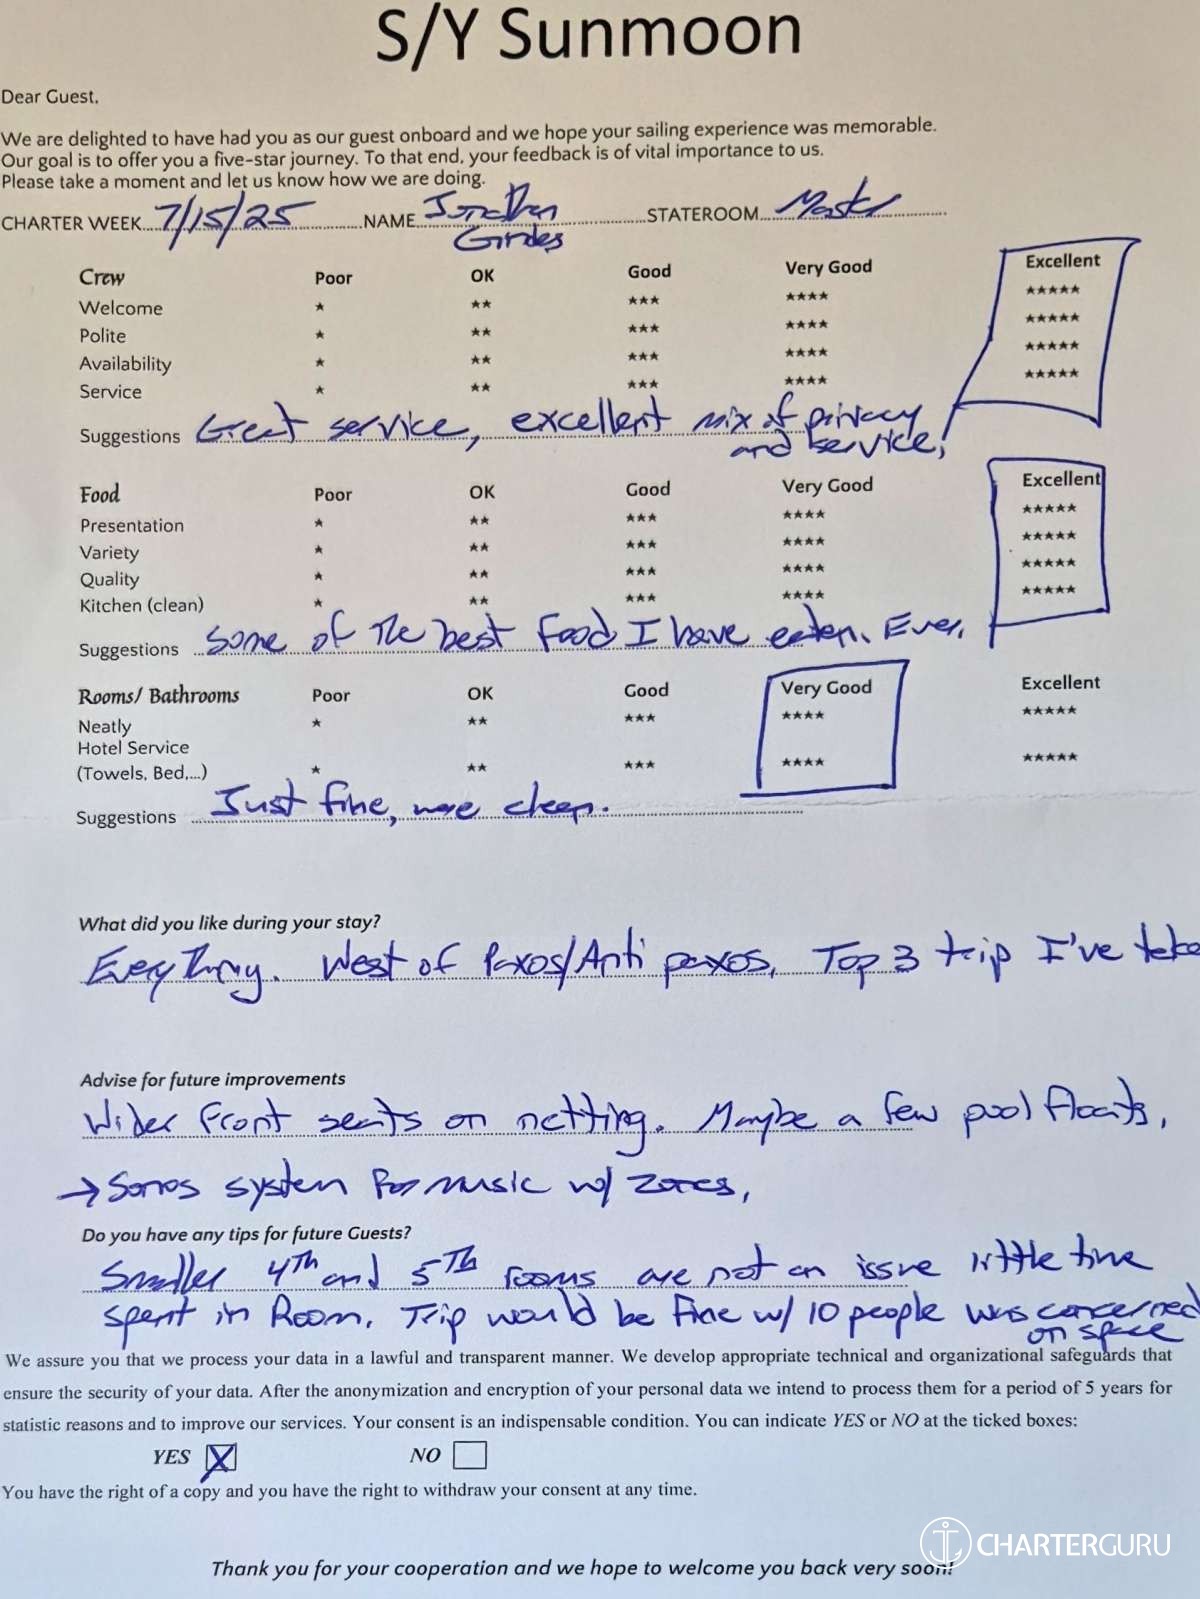 S/Y Sunmoon
Dear Guest,
We are delighted to have had you as our guest onboard and we hope your sailing experience was memorable.
Our goal is to offer you a five-star journey. To that end, your feedback is of vital importance to us.
Please take a moment and let us know how we are doing.
CHARTER WEEK 7/15/25 NAME Jonathan STATEROOM Master
Crew Poor OK Good Very Good Excellent
Welcome ★ ★★ ★★★ ★★★★ ★★★★★
Polite ★ ★★ ★★★ ★★★★ ★★★★★
Availability ★ ★★ ★★★ ★★★★ ★★★★★
Service ★ ★★ ★★★ ★★★★ ★★★★★
Suggestions Great service, excellent mix of privacy
and service,
Food Poor OK Good Very Good Excellent
Presentation ★ ★★ ★★★ ★★★★ ★★★★★
Variety ★ ★★ ★★★ ★★★★ ★★★★★
Quality ★ ★★ ★★★ ★★★★ ★★★★★
Kitchen (clean) ★ ★★ ★★★ ★★★★ ★★★★★
Suggestions Some of the best food I have eaten. Ever.
Rooms/ Bathrooms Poor OK Good Very Good Excellent
Neatly ★ ★★ ★★★ ★★★★ ★★★★★
Hotel Service
(Towels, Bed,...) ★ ★★ ★★★ ★★★★ ★★★★★
Suggestions Just fine, were clean.
What did you like during your stay?
Everything. West of Paxos/Anti paxos, Top 3 trip I've take
Advise for future improvements
Wider front seats on netting. Maybe a few pool floats,
→ Sonos system for music w/ zones,
Do you have any tips for future Guests?
Smaller 4th and 5th rooms are not an issue little time
spent in Room. Trip would be fine w/ 10 people was concerned
on space
We assure you that we process your data in a lawful and transparent manner. We develop appropriate technical and organizational safeguards that
ensure the security of your data. After the anonymization and encryption of your personal data we intend to process them for a period of 5 years for
statistic reasons and to improve our services. Your consent is an indispensable condition. You can indicate YES or NO at the ticked boxes:
YES X NO
You have the right of a copy and you have the right to withdraw your consent at any time.
CHARTERGURU
Thank you for your cooperation and we hope to welcome you back very soon!